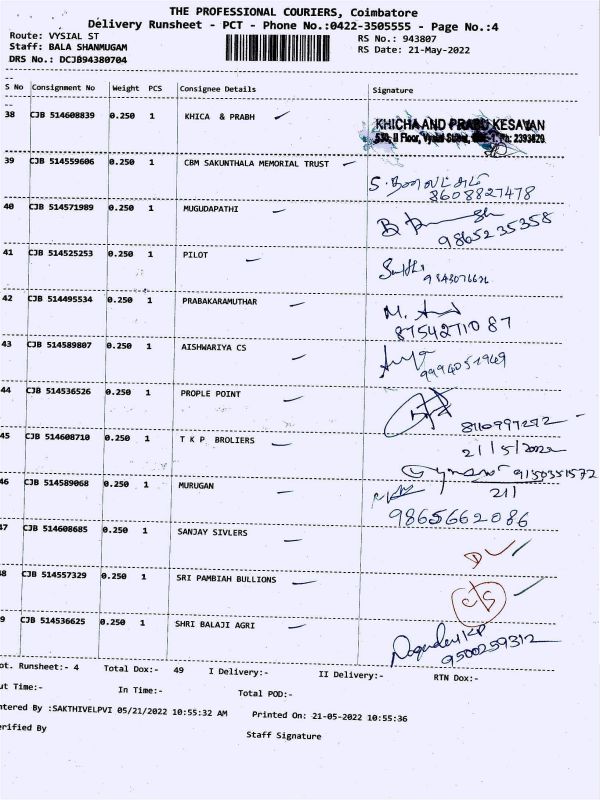 THE PROFESSIONAL COURIERS, Coimbatore
Delivery Runsheet - PCT - Phone No.:0422-3505555 - Page No.:4
Route: VYSIAL ST
RS No.: 943807
Staff: BALA SHANMUGAM
RS Date: 21-May-2022
DRS No.: DCJB94380704
S No Consignment No Weight PCS Consignee Details Signature
38 CJB 514608839 0.250 1 KHICA & PRABH
KHICHA AND PRABU KESAVAN
530, II Floor, Vysial Street, Ph: 2393829
39 CJB 514559606 0.250 1 CBM SAKUNTHALA MEMORIAL TRUST
8608827478
40 CJB 514571989 0.250 1 MUGUDAPATHI
9865235358
41 CJB 514525253 0.250 1 PILOT
42 CJB 514495534 0.250 1 PRABAKARAMUTHAR
8754271087
43 CJB 514589807 1 AISHWARIYA CS 0.250
9994051969
44 CJB 514536526 0.250 1 PROPLE POINT
8110997272
45 CJB 514608710 0.250 1 T K P BROLIERS
21/5/2022
9150351572
46 CJB 514589068 0.250 1 MURUGAN
211
9865662086
47 CJB 514608685 0.250 1 SANJAY SIVLERS
D
48 CJB 514557329 0.250 1 SRI PAMBIAH BULLIONS
C/S
49 CJB 514536625 0.250 1 SHRI BALAJI AGRI
9500259312
ot. Runsheet:- 4 Total Dox:- 49 I Delivery:- II Delivery:- RTN Dox:-
ut Time:- In Time:- Total POD:-
ntered By :SAKTHIVELPVI 05/21/2022 10:55:32 AM Printed On: 21-05-2022 10:55:36
erified By Staff Signature